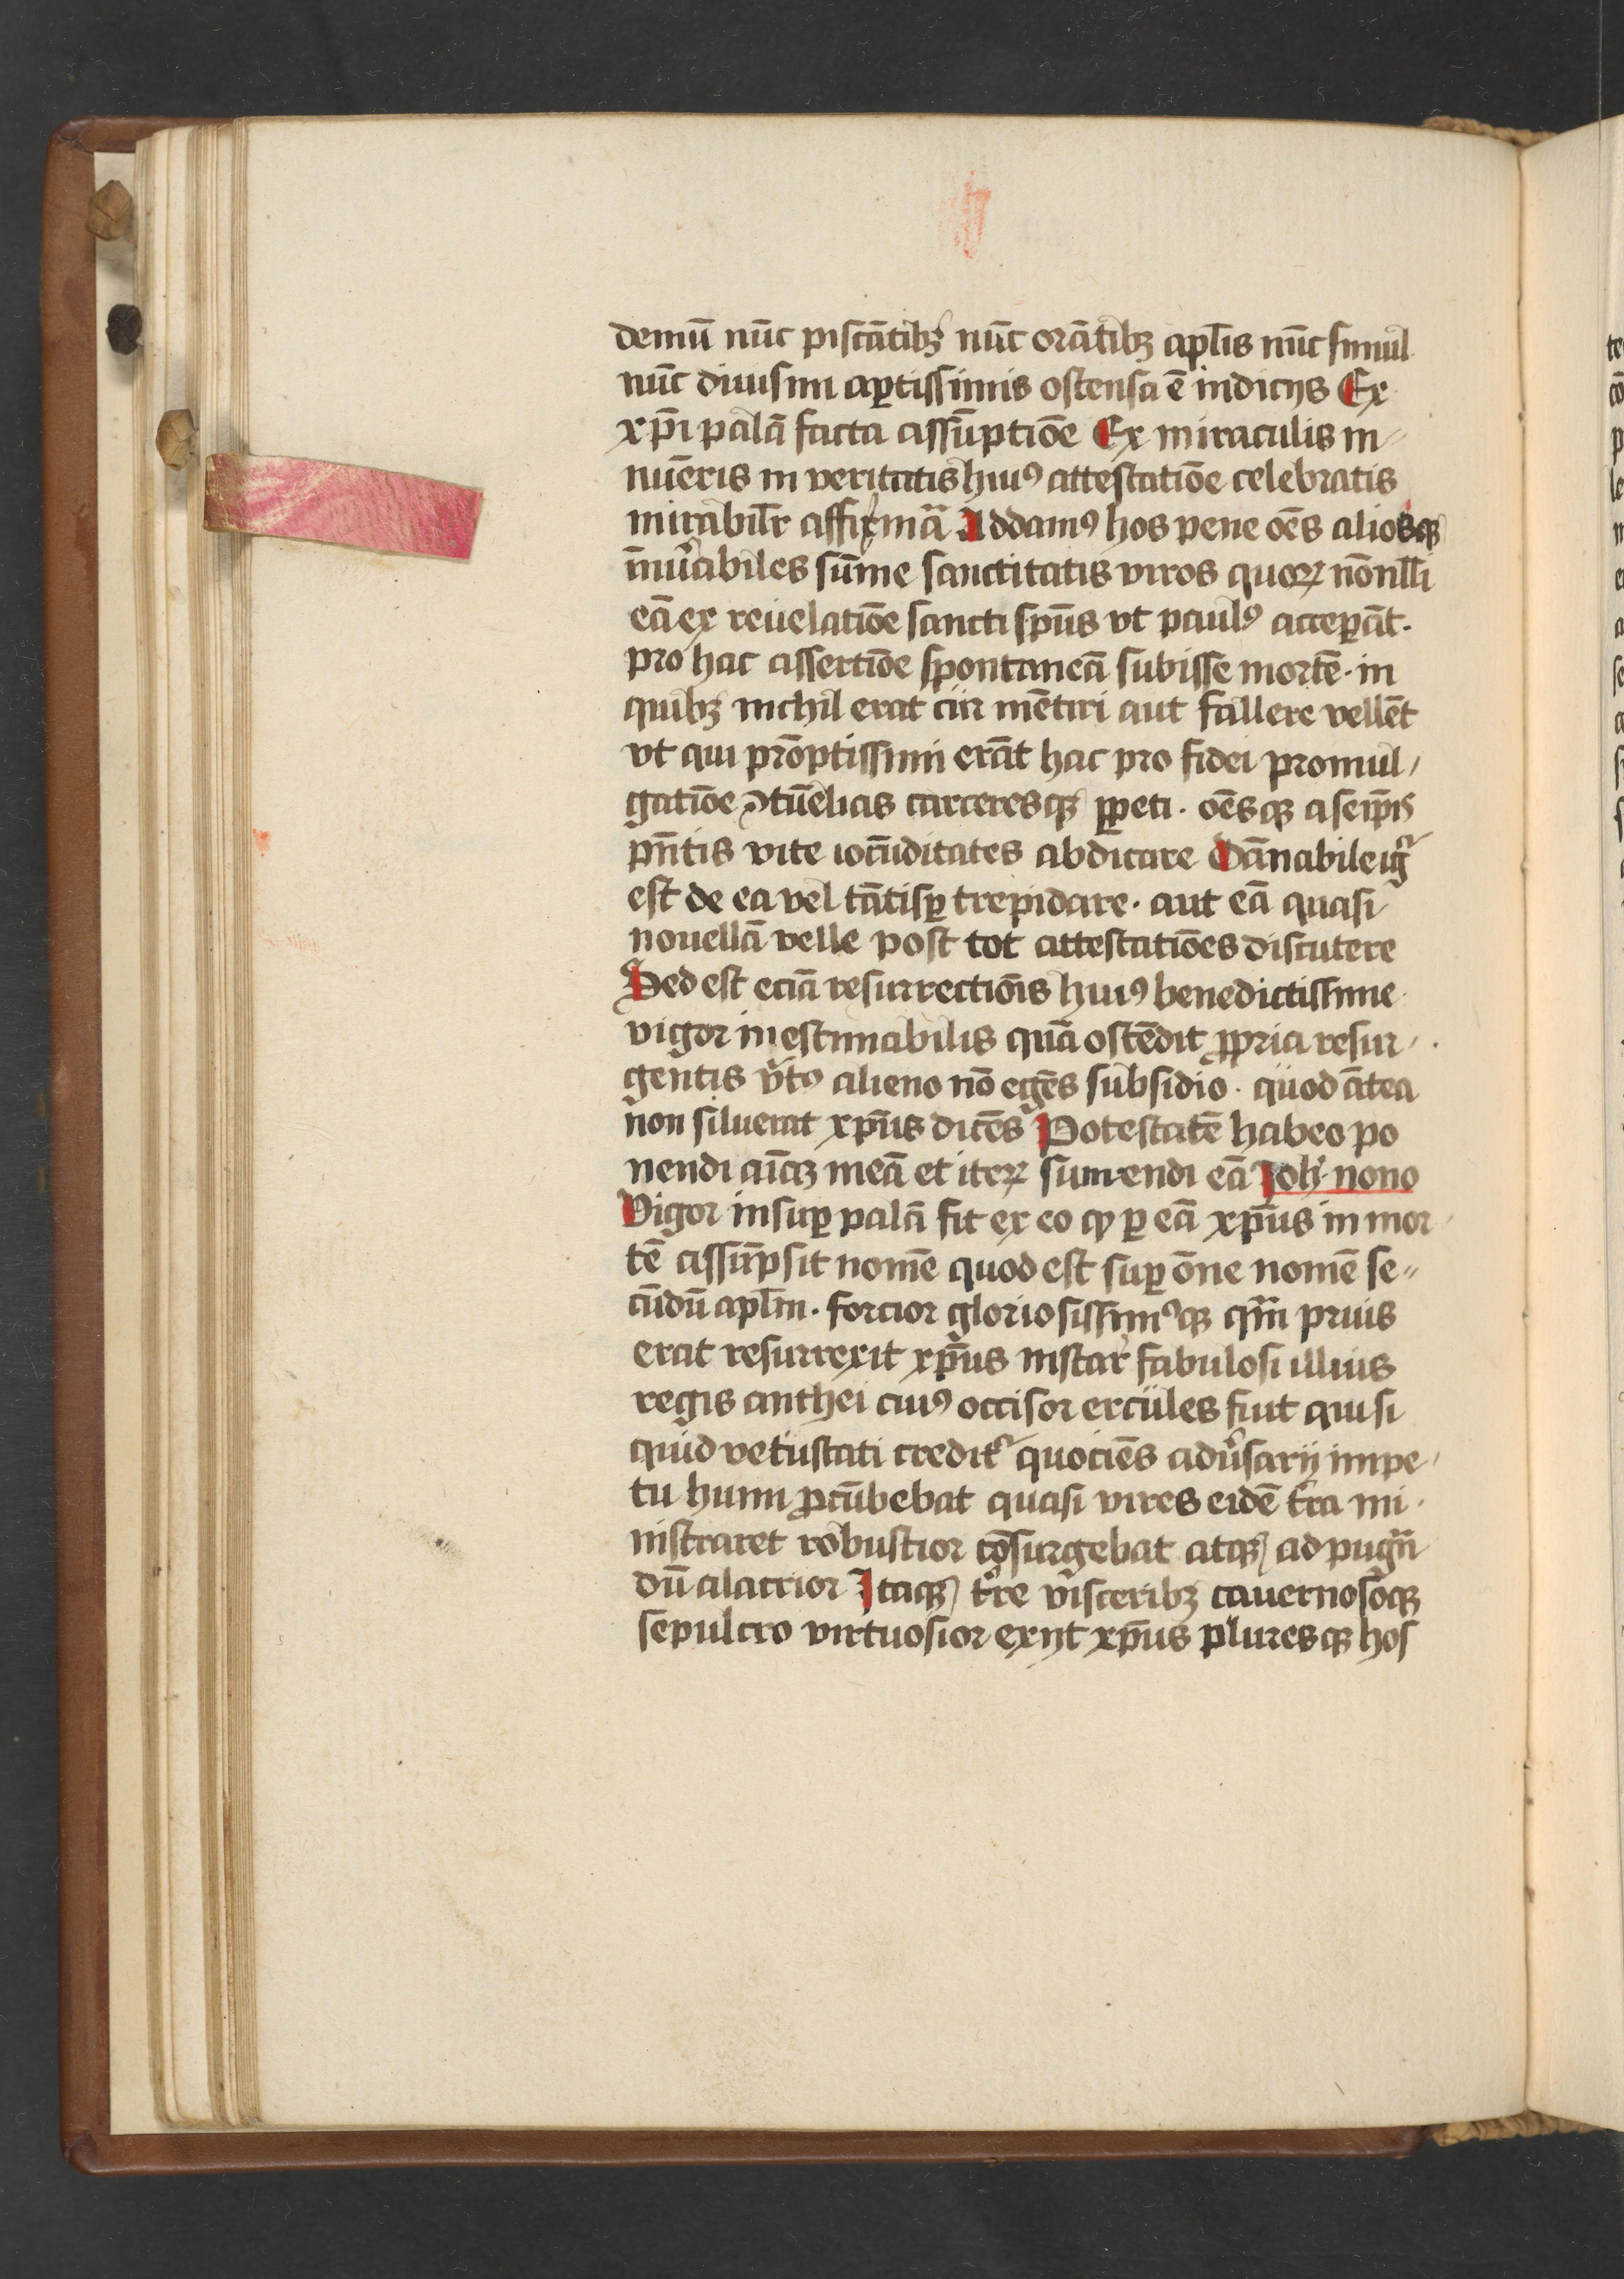 demū nūc piscātibꝫ nūc orātibꝫ apl̄is nūc simul
nūc diuisim aꝑtissimis ostensa ē indicijs Ex
xp̄i palā facta assūptiōe Ex miraculis in-
nūeris in veritatis huiꝰ attestatiōe celebratis
mirabilr̄ affirmā Addamꝰ hos pene oēs aliosqꝫ
in̄uᷓabiles sūme sanctitatis viros quoꝝ nōnll̄i
eā ex reuelatiōe sancti sp̄us vt paulꝰ acceꝑāt.
pro hac assertiōe spontaneā subisse mortē. in
quibꝫ nichil erat cur mētiri aut fallere vellēt
vt qui prōptissimi erāt hac pro fidei promul-
gatiōe ꝯtūelias carceresqꝫ ꝑpeti. oēsqꝫ a seip̄is
pn̄tis vite iocūditates abdicare Dānabile igᷓ
est de ea vel tātisꝑ trepidare. aut eā quasi
nouellā velle post tot attestatiōes discutere
Sed est eciā resurrectiōis huiꝰ benedictissime
vigor inestimabilis quā ostēdit ꝓpria resur-
gentis v̓tꝰ alieno nō egēs subsidio. quod ātea
non siluerat xp̄us dicēs Potestatē habeo po
nendi aīaꝫ meā et iteꝝ sumendi eā Joh̄. nono
Vigor insuꝑ palā fit ex eo ꝙ ꝑ eā xp̄us in mor-
tē assūpsit nomē quod est suꝑ ōne nomē se-
cūdū apl̄m. forcior gloriosissimꝰqꝫ qᷓm prius
erat resurrexit xp̄us instar fabulosi illius
regis anthei cuiꝰ occisor ercules fuit qui si
quid vetustati creditᷣ quociēs adūsarij impe-
tu humi ꝓcūbebat quasi vires eidē t̓ra mi-
nistraret robustior cōsurgebat atqꝫ ad pugᷓn
dū alacrior Itaqꝫ t̓re visceribꝫ cauernosoqꝫ
sepulcro virtuosior exijt xp̄us pluresqꝫ hos